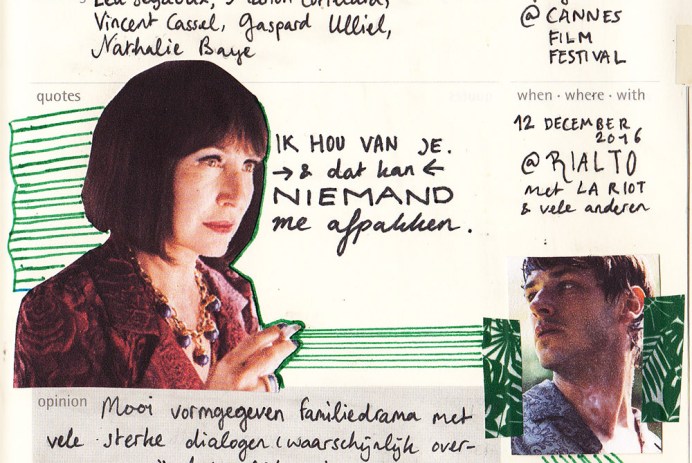 Vincent Cassel, Gaspard Ulliel,
Nathalie Baye
@ CANNES
FILM
FESTIVAL
quotes
IK HOU VAN JE.
→ & dat kan ←
NIEMAND
me afpakken.
when · where · with
12 DECEMBER
2016
@ RIALTO
met LA RIOT
& vele anderen
opinion
Mooi vormgegeven familiedrama met
vele sterke dialogen (waarschijnlijk over-